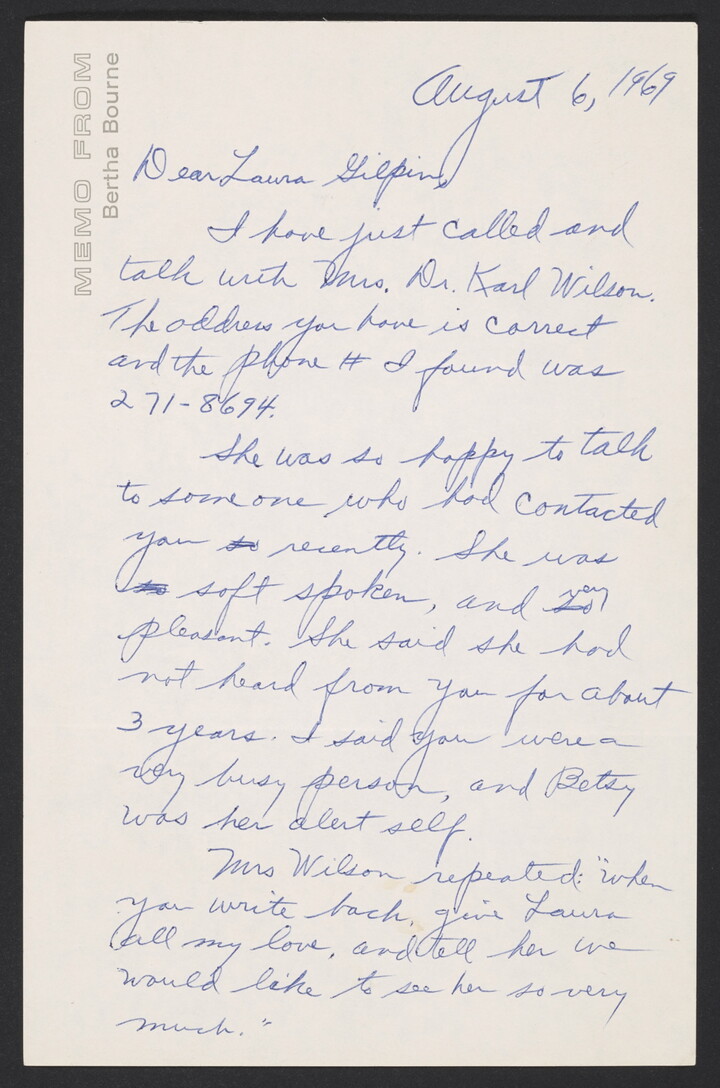 MEMO FROM
Bertha Bourne
August 6, 1969
Dear Laura Gilpin,
I have just called and
talk with Mrs. Dr. Karl Wilson.
The address you have is correct
and the phone # I found was
271-8694.
She was so happy to talk
to someone who had contacted
you so recently. She was
so soft spoken, and very
pleasant. She said she had
not heard from you for about
3 years. I said you were a
very busy person, and Betsy
was her alert self.
Mrs Wilson repeated: "when
you write back, give Laura
all my love, and tell her we
would like to see her so very
much."